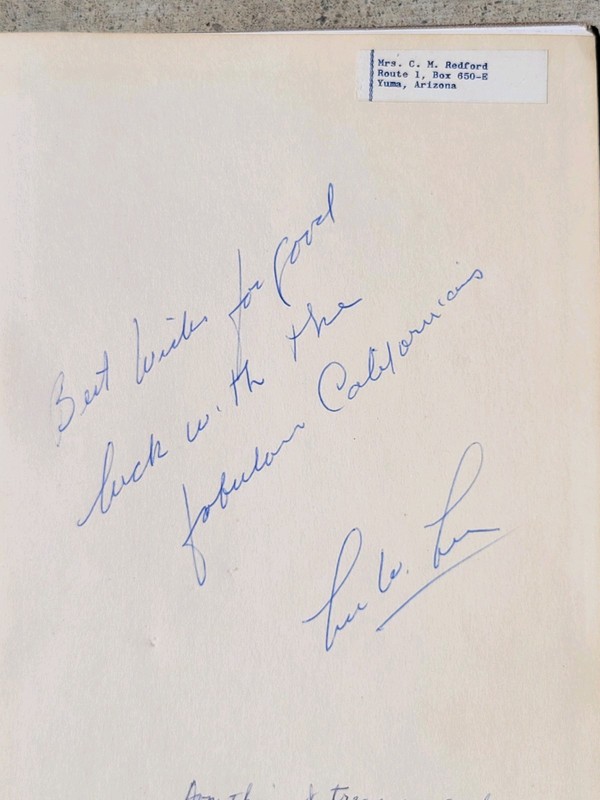 Mrs. C. M. Redford
Route 1, Box 650-E
Yuma, Arizona
Best Wishes for good
luck with the
fabulous Californians